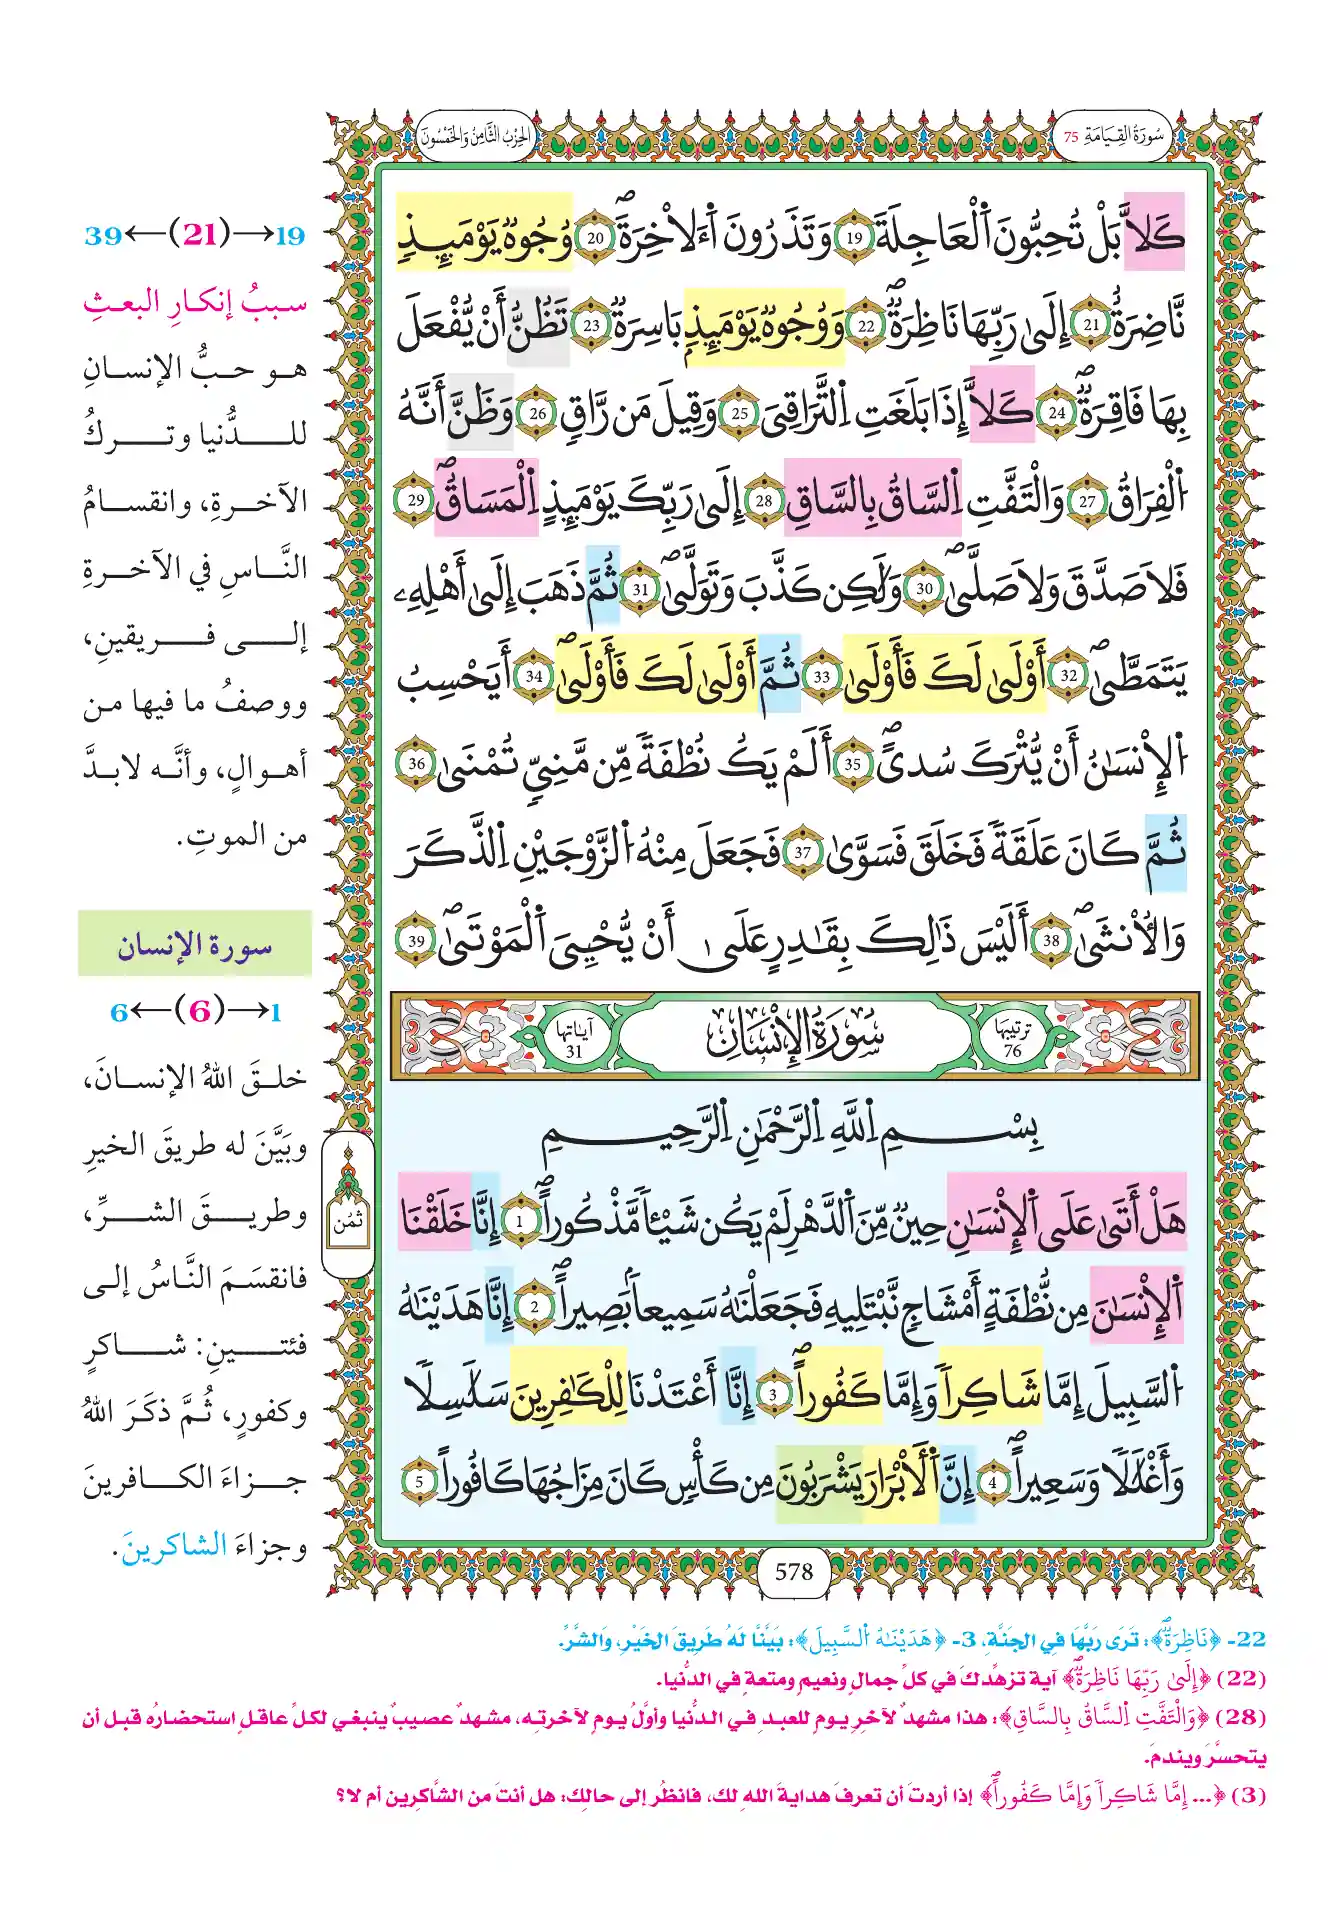 سُورَةُ القِيَامَةِ 75
الحِزْبُ الثَّامِنُ وَالخَمْسُونَ
كَلَّا بَلْ تُحِبُّونَ اَ۬لْعَاجِلَةَ 19 وَتَذَرُونَ اَ۬لَاخِرَةَۖ 20 وُجُوهٞ يَوْمَئِذٖ
نَّاضِرَةٌ 21 إِلَىٰ رَبِّهَا نَاظِرَةٞۖ 22 وَوُجُوهٞ يَوْمَئِذِۢ بَاسِرَةٞ 23 تَظُنُّ أَنْ يُّفْعَلَ
بِهَا فَاقِرَةٞۖ 24 كَلَّا إِذَا بَلَغَتِ اِ۬لتَّرَاقِيَ 25 وَقِيلَ مَن رَّاقٖ 26 وَظَنَّ أَنَّهُ
اُ۬لْفِرَاقُ 27 وَالْتَفَّتِ اِ۬لسَّاقُ بِالسَّاقِ 28 إِلَىٰ رَبِّكَ يَوْمَئِذٍ اِ۬لْمَسَاقُۖ 29
فَلَا صَدَّقَ وَلَا صَلَّىٰۖ 30 وَلَٰكِن كَذَّبَ وَتَوَلَّىٰۖ 31 ثُمَّ ذَهَبَ إِلَىٰ أَهْلِهِۦ
يَتَمَطَّىٰۖ 32 أَوْلَىٰ لَكَ فَأَوْلَىٰ 33 ثُمَّ أَوْلَىٰ لَكَ فَأَوْلَىٰۖ 34 أَيَحْسِبُ
اُ۬لْإِنْسَٰنُ أَنْ يُّتْرَكَ سُدىًۖ 35 أَلَمْ يَكُ نُطْفَةٗ مِّن مَّنِيّٖ تُمْنَىٰ 36
ثُمَّ كَانَ عَلَقَةٗ فَخَلَقَ فَسَوَّىٰ 37 فَجَعَلَ مِنْهُ اُ۬لزَّوْجَيْنِ اِ۬لذَّكَرَ
وَالُانْثَىٰۖ 38 أَلَيْسَ ذَٰلِكَ بِقَٰدِرٍ عَلَىٰ أَنْ يُّحْـِۧيَ اَ۬لْمَوْتَىٰۖ 39
ترتيبها 76
سُورَةُ الإِنْسَانِ
آياتها 31
بِسْمِ اِ۬للَّهِ اِ۬لرَّحْمَٰنِ اِ۬لرَّحِيمِ
هَلْ أَتَىٰ عَلَى اَ۬لْإِنْسَٰنِ حِينٞ مِّنَ اَ۬لدَّهْرِ لَمْ يَكُن شَيْـٔاٗ مَّذْكُوراًۖ 1 إِنَّا خَلَقْنَا
اَ۬لْإِنْسَٰنَ مِن نُّطْفَةٍ أَمْشَاجٖ نَّبْتَلِيهِ فَجَعَلْنَٰهُ سَمِيعاَۢ بَصِيراًۖ 2 إِنَّا هَدَيْنَٰهُ
اُ۬لسَّبِيلَ إِمَّا شَاكِراٗ وَإِمَّا كَفُوراًۖ 3 إِنَّا أَعْتَدْنَا لِلْكَٰفِرِينَ سَلَٰسِلاٗ
وَأَغْلَٰلاٗ وَسَعِيراًۖ 4 إِنَّ اَ۬لْأَبْرَارَ يَشْرَبُونَ مِن كَأْسٖ كَانَ مِزَاجُهَا كَافُوراً 5
ثمُن
578
19→(21)←39
سببُ إنكارِ البعثِ
هو حبُّ الإنسانِ
للدُّنيا وتركُ
الآخرةِ، وانقسامُ
النَّاسِ في الآخرةِ
إلى فريقينِ،
ووصفُ ما فيها من
أهوالٍ، وأنَّه لابدَّ
من الموتِ.
سورة الإنسان
1→(6)←6
خلقَ اللهُ الإنسانَ،
وبَيَّنَ له طريقَ الخيرِ
وطريقَ الشرِّ،
فانقسَمَ النَّاسُ إلى
فئتينِ: شاكرٍ
وكفورٍ، ثُمَّ ذكَرَ اللهُ
جزاءَ الكافرينَ
وجزاءَ الشاكرينَ.
22- ﴿نَاظِرَةٞۖ﴾: تَرَى رَبَّهَا فِي الجَنَّةِ، 3- ﴿هَدَيْنَٰهُ اُ۬لسَّبِيلَ﴾: بَيَّنَّا لَهُ طَرِيقَ الخَيْرِ، وَالشَّرِّ.
(22) ﴿إِلَىٰ رَبِّهَا نَاظِرَةٞۖ﴾ آية تزهِّدكَ في كلِّ جمالٍ ونعيمٍ ومتعةٍ في الدُّنيا.
(28) ﴿وَالْتَفَّتِ اِ۬لسَّاقُ بِالسَّاقِ﴾: هذا مشهدٌ لآخرِ يومٍ للعبدِ في الدُّنيا وأوَّلُ يومٍ لآخرتِه، مشهدٌ عصيبٌ ينبغي لكلِّ عاقلٍ استحضارُه قبل أن
يتحسَّرَ ويندمَ.
(3) ﴿... إِمَّا شَاكِراٗ وَإِمَّا كَفُوراًۖ﴾ إذا أردتَ أن تعرفَ هدايةَ اللهِ لك، فانظُر إلى حالِك: هل أنتَ من الشَّاكرِين أم لا؟